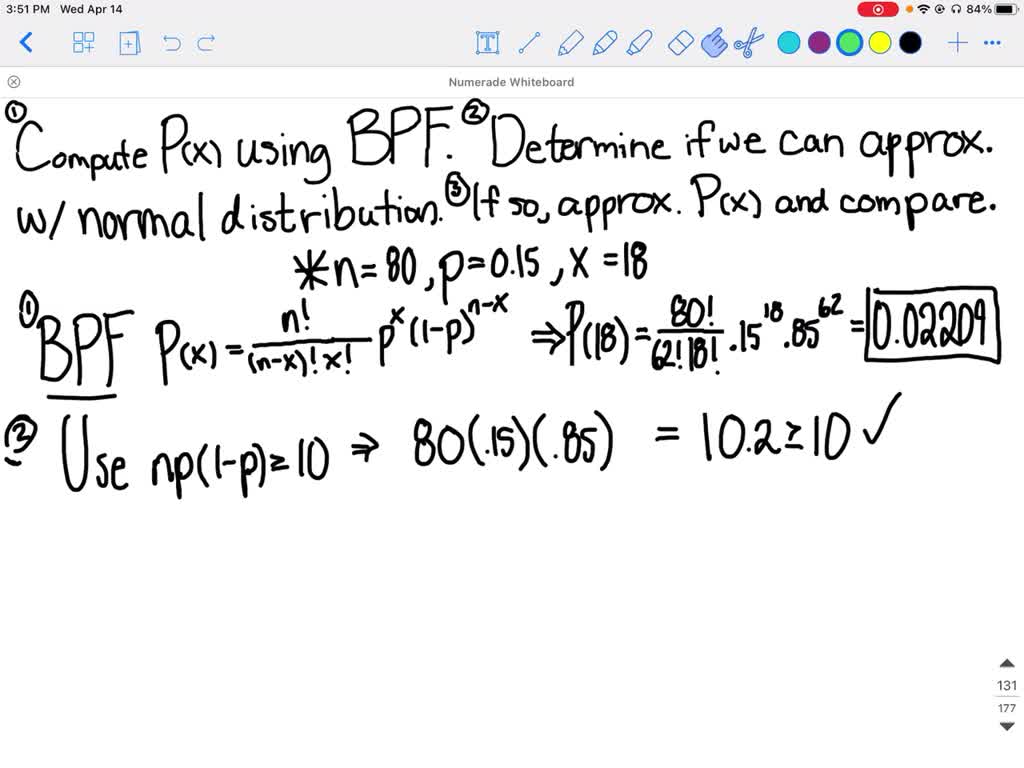 3:51 PM Wed Apr 14 84%
T
Numerade Whiteboard
① Compute P(x) using BPF. ② Determine if we can approx.
w/ normal distribution. ③ If so, approx. P(x) and compare.
* n = 80, p = 0.15, x = 18
① BPF P(x) = n!/((n-x)! x!) p^x (1-p)^(n-x) ⇒ P(18) = 80!/(62! 18!) .15^18 .85^62 = 0.02209
② Use np(1-p) ≥ 10 ⇒ 80(.15)(.85) = 10.2 ≥ 10 ✓
131
177